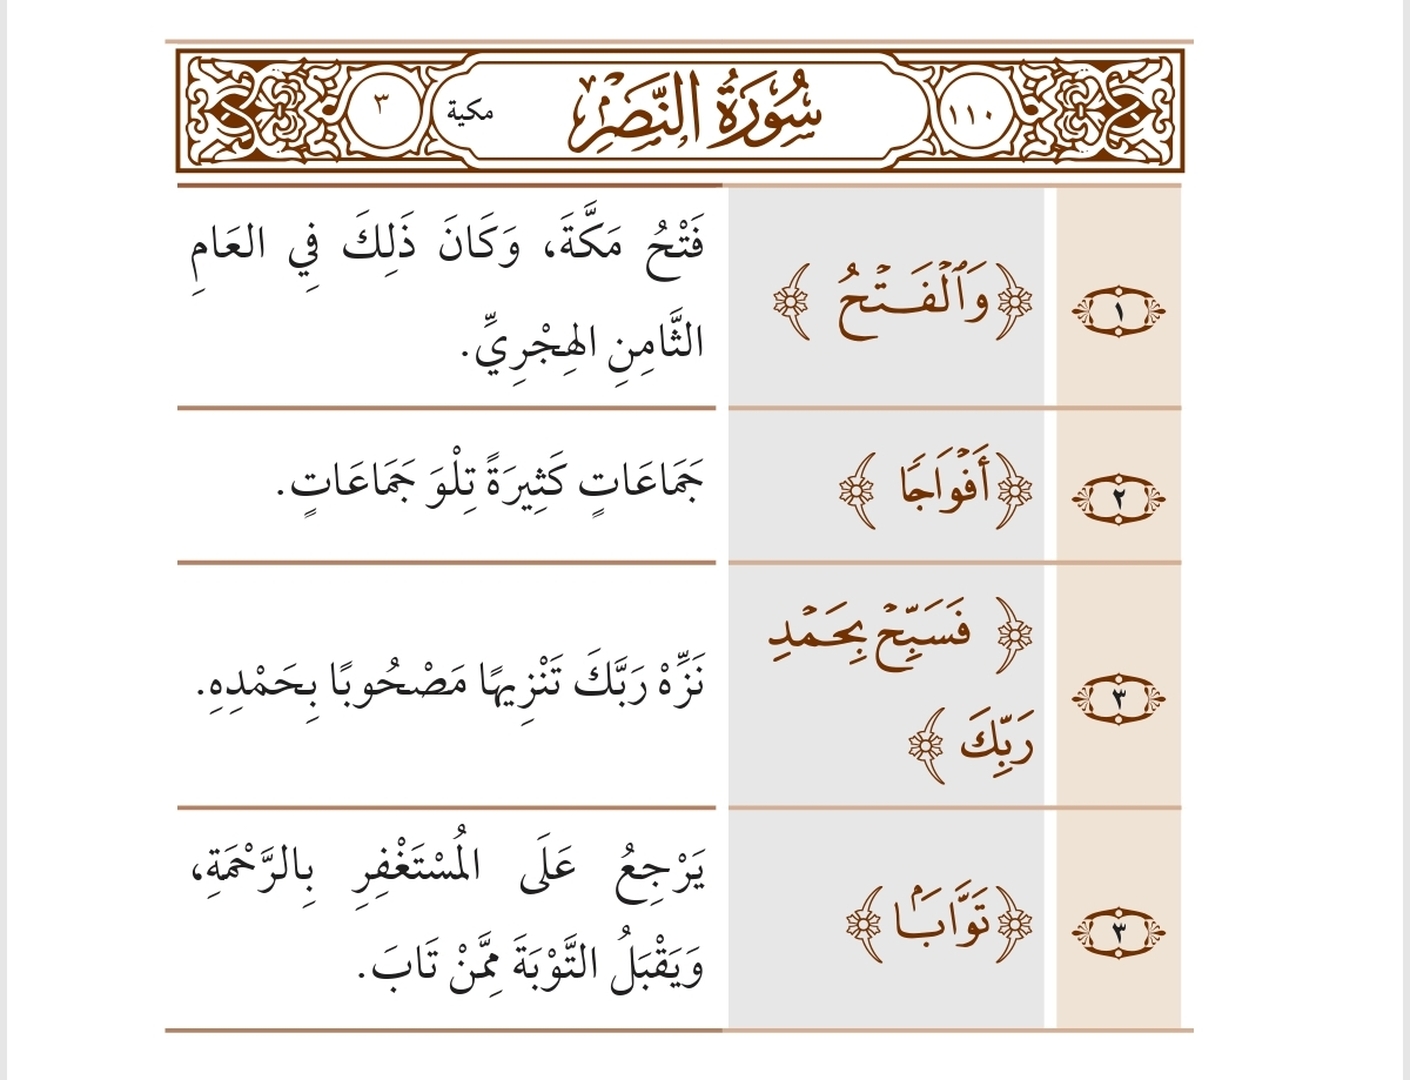 ١١٠ سُورَةُ النَّصْرِ مكية ٣
١ ﴿وَٱلۡفَتۡحُ﴾ فَتْحُ مَكَّةَ، وَكَانَ ذَلِكَ فِي العَامِ
الثَّامِنِ الهِجْرِيِّ.
٢ ﴿أَفۡوَاجٗا﴾ جَمَاعَاتٍ كَثِيرَةً تِلْوَ جَمَاعَاتٍ.
٣ ﴿فَسَبِّحۡ بِحَمۡدِ
رَبِّكَ﴾ نَزِّهْ رَبَّكَ تَنْزِيهًا مَصْحُوبًا بِحَمْدِهِ.
٣ ﴿تَوَّابَۢا﴾ يَرْجِعُ عَلَى المُسْتَغْفِرِ بِالرَّحْمَةِ،
وَيَقْبَلُ التَّوْبَةَ مِمَّنْ تَابَ.